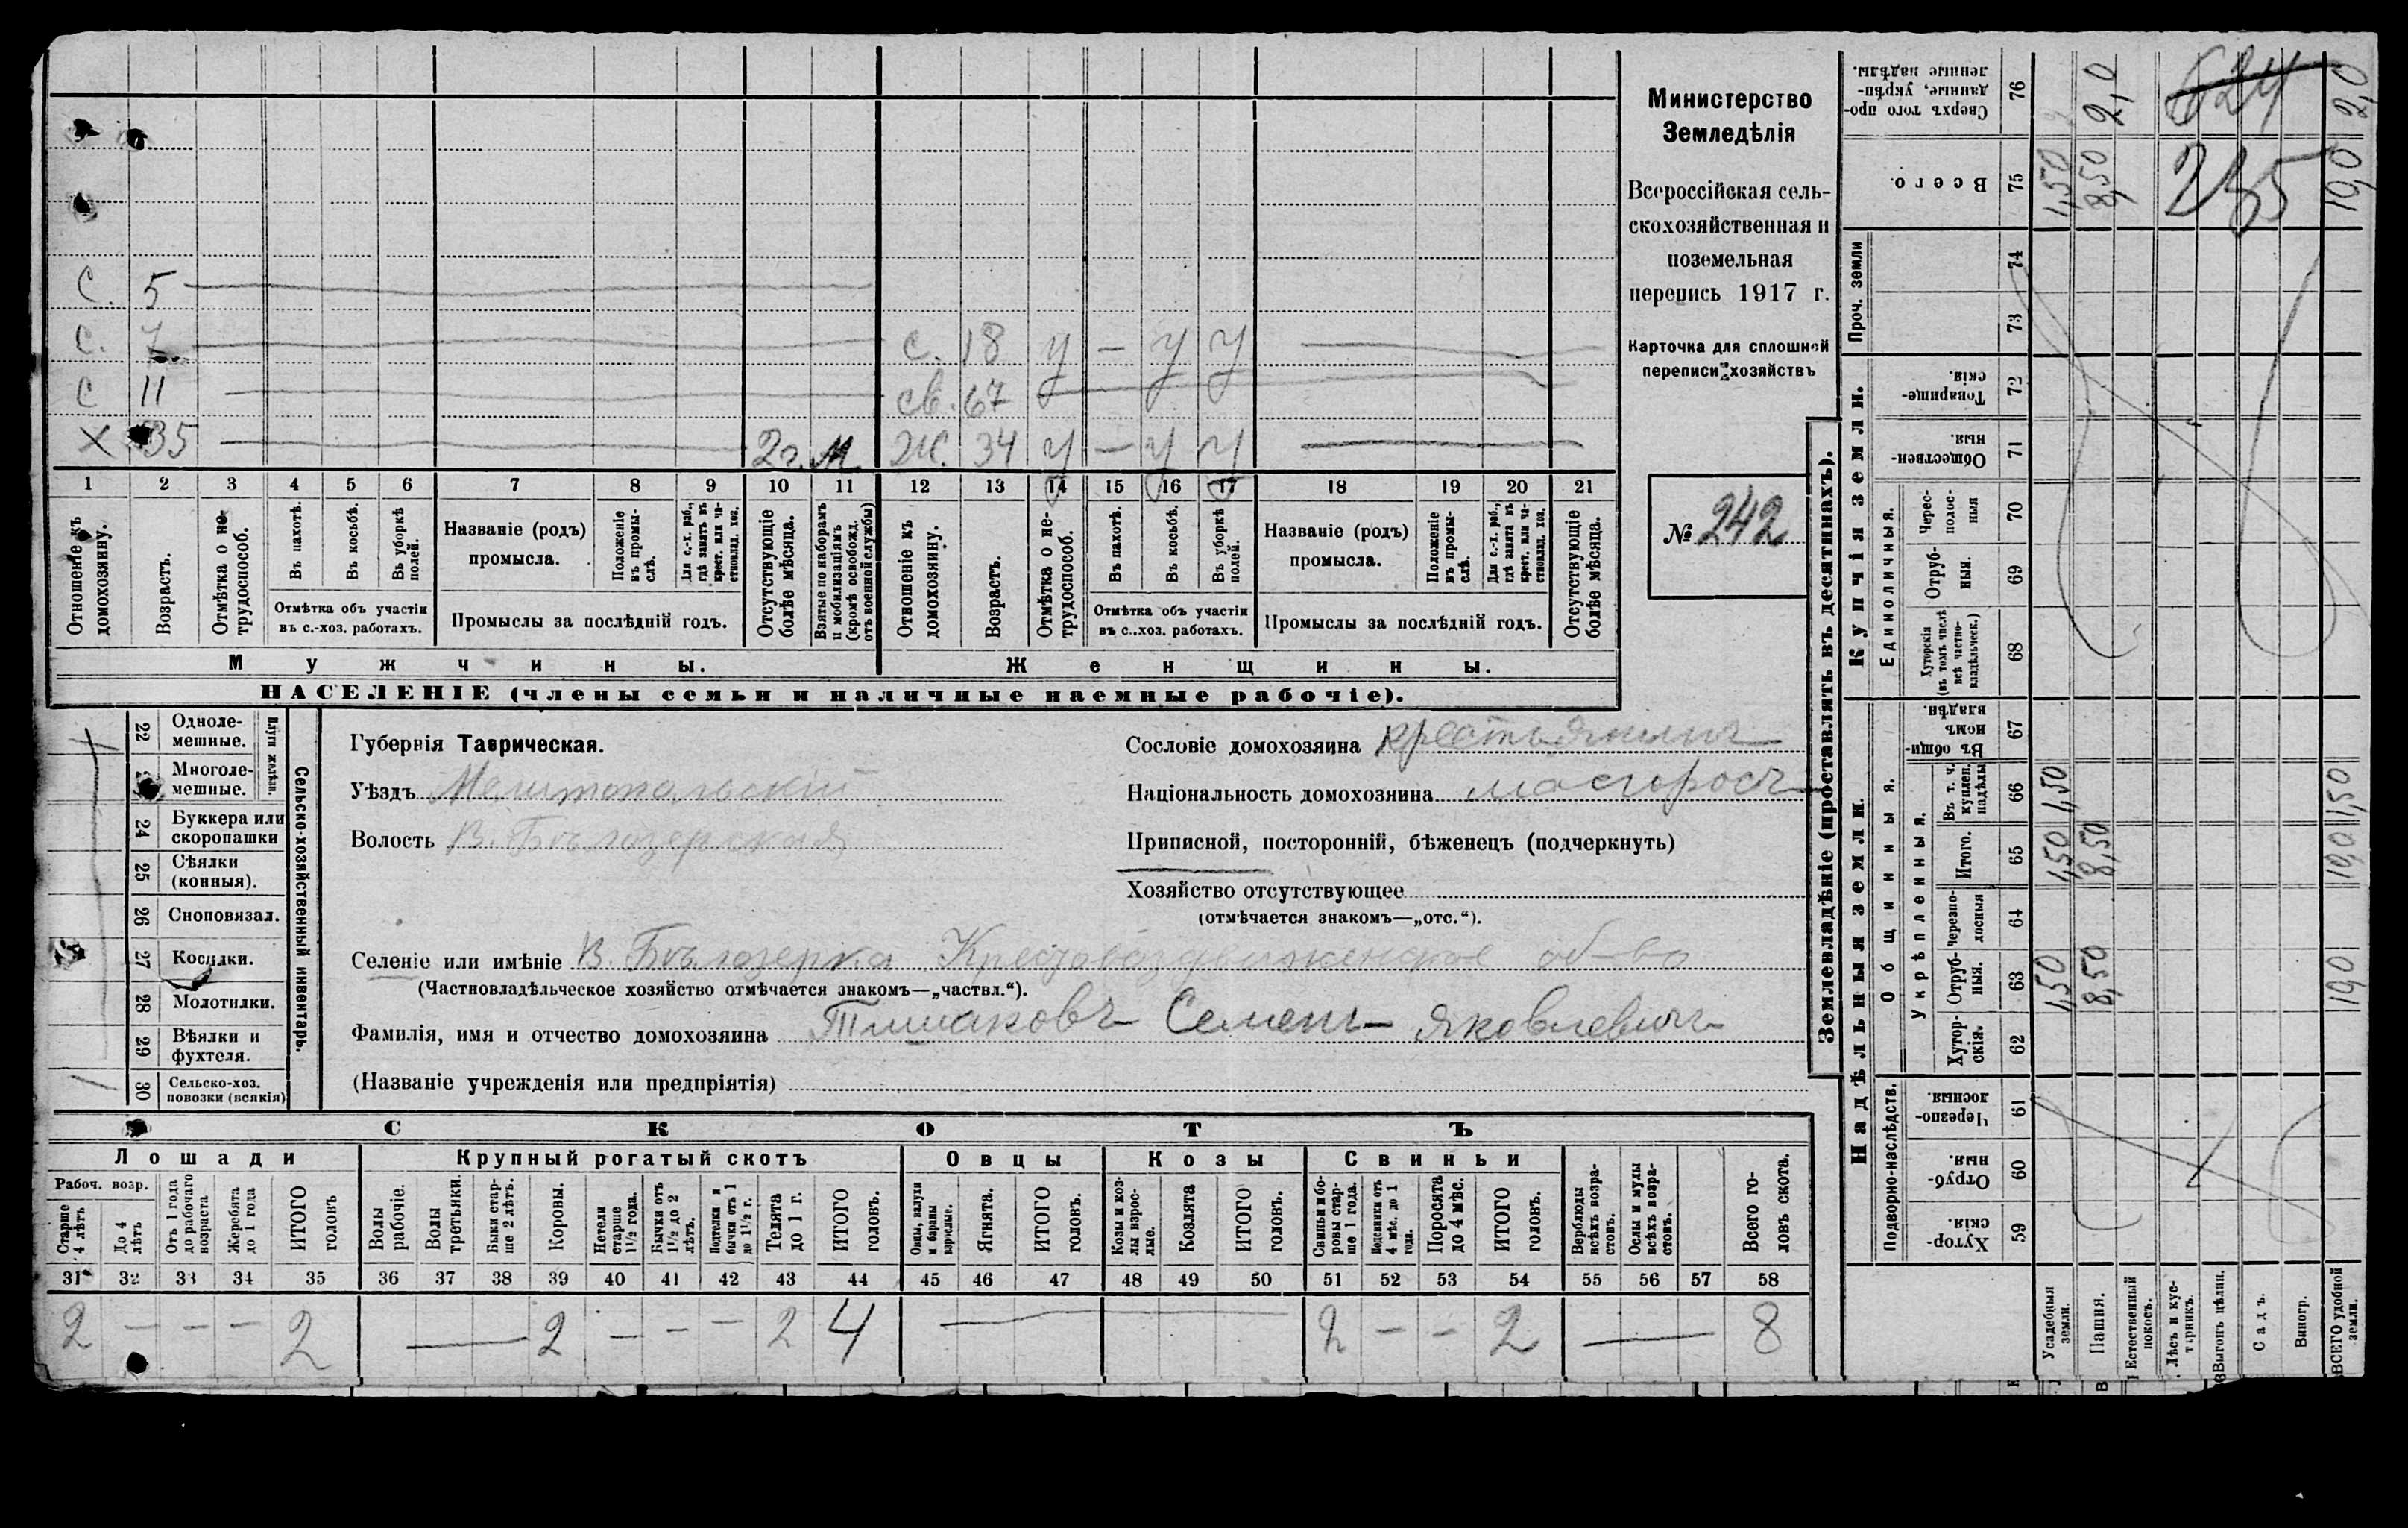 С. 5
С. 7 с. 18 у — у у
С 11 св. 67
Х 35 2 г. М Ж. 34 у — у у
1 2 3 4 5 6 7 8 9 10 11 12 13 14 15 16 17 18 19 20 21
Отношеніе къ домохозяину.
Возрастъ.
Отмѣтка о не-трудоспособ.
Въ пахотѣ.
Въ косьбѣ.
Въ уборкѣ полей.
Отмѣтка объ участіи
въ с.-хоз. работахъ.
Названіе (родъ)
промысла.
Положеніе въ промы-слѣ.
Для с.-х. раб., гдѣ занятъ въ крест. или ча-стновлад. хоз.
Промыслы за послѣдній годъ.
Отсутствующіе болѣе мѣсяца.
Взятые по наборамъ и мобилизаціямъ (кромѣ освобожд. отъ военной службы)
Отношеніе къ домохозяину.
Возрастъ.
Отмѣтка о не-трудоспособ.
Въ пахотѣ.
Въ косьбѣ.
Въ уборкѣ полей.
Отмѣтка объ участіи
въ с.-хоз. работахъ.
Названіе (родъ)
промысла.
Положеніе въ промы-слѣ.
Для с.-х. раб., гдѣ занятъ въ крест. или ча-стновлад. хоз.
Промыслы за послѣдній годъ.
Отсутствующіе болѣе мѣсяца.
Мужчины. Женщины.
НАСЕЛЕНІЕ (члены семьи и наличные наемные рабочіе).
Министерство
Земледѣлія
Всероссійская сель-
скохозяйственная и
поземельная
перепись 1917 г.
Карточка для сплошной
переписи хозяйствъ
№ 242
22 Одноле-мешные.
Многоле-мешные.
Плуги желѣзн.
24 Буккера или скоропашки
25 Сѣялки (конныя).
26 Сноповязал.
27 Косилки.
28 Молотилки.
29 Вѣялки и фухтеля.
30 Сельско-хоз. повозки (всякія)
Сельско-хозяйственный инвентарь.
Губернія Таврическая.
Уѣздъ Мелитопольскій
Волость В. Бѣлозерская
Сословіе домохозяина крестьянинъ
Національность домохозяина малороссъ
Приписной, посторонній, бѣженецъ (подчеркнуть)
Хозяйство отсутствующее
(отмѣчается знакомъ—„отс.“).
Селеніе или имѣніе В. Бѣлозерка Крестовоздвиженское об-во
(Частновладѣльческое хозяйство отмѣчается знакомъ—„частвл.“).
Фамилія, имя и отчество домохозяина Семенъ Яковлевичъ
(Названіе учрежденія или предпріятія)
СКОТЪ
Лошади Крупный рогатый скотъ Овцы Козы Свиньи
Рабоч. возр.
Старше 4 лѣтъ
До 4 лѣтъ
Отъ 1 года до рабочаго возраста
Жеребята до 1 года
ИТОГО головъ
Волы рабочіе.
Волы третьяки.
Быки стар-ше 2 лѣтъ.
Коровы.
Нетели старше 1½ года.
Бычки отъ 1½ до 2 лѣтъ.
Подтелки и бычки отъ 1 до 1½ г.
Телята до 1 г.
ИТОГО головъ.
Овцы, валухи и бараны взрослые.
Ягнята.
ИТОГО головъ.
Козы и коз-лы взрос-лые.
Козлята
ИТОГО головъ.
Свиньи и бо-ровы стар-ше 1 года.
Подсвинки отъ 4 мѣс. до 1 года.
Поросята до 4 мѣс.
ИТОГО головъ.
Верблюды всѣхъ возра-стовъ.
Ослы и мулы всѣхъ возра-стовъ.
Всего го-ловъ скота.
31 32 33 34 35 36 37 38 39 40 41 42 43 44 45 46 47 48 49 50 51 52 53 54 55 56 57 58
2 — — — 2 — 2 — — — 2 4 — 2 — — 2 — 8
Землевладѣніе (проставлять въ десятинахъ).
Сверхъ того про-данные, укрѣп-ленные надѣлы. 76 2,0 624 2,0
Всего. 75 1,50 8,50 235 10,0
Купчія земли.
Проч. земли
74
73
Товарище-скія. 72
Обществен-ныя. 71
Единоличныя.
Черес-полос-ныя 70
Отруб-ныя. 69
Хуторскія (въ томъ числѣ всѣ частно-владѣльческ.) 68
Надѣльныя земли.
Общинныя.
Въ общи-номъ владѣн. 67
Укрѣпленныя.
Въ т. ч. куплен. надѣлы 66 1,50 1,50
Итого. 65 1,50 8,50 10,0
Черезпо-лосныя 64
Отруб-ныя. 63 1,50 8,50 10,0
Хутор-скія. 62
Подворно-наслѣдств.
Черезпо-лосныя. 61
Отруб-ныя. 60
Хутор-скія. 59
Усадебныя земли.
Пашня.
Естественный покосъ.
Лѣсъ и кус-тарникъ.
Выгонъ цѣлин.
Садъ.
Виногр.
ВСЕГО удобной земли.